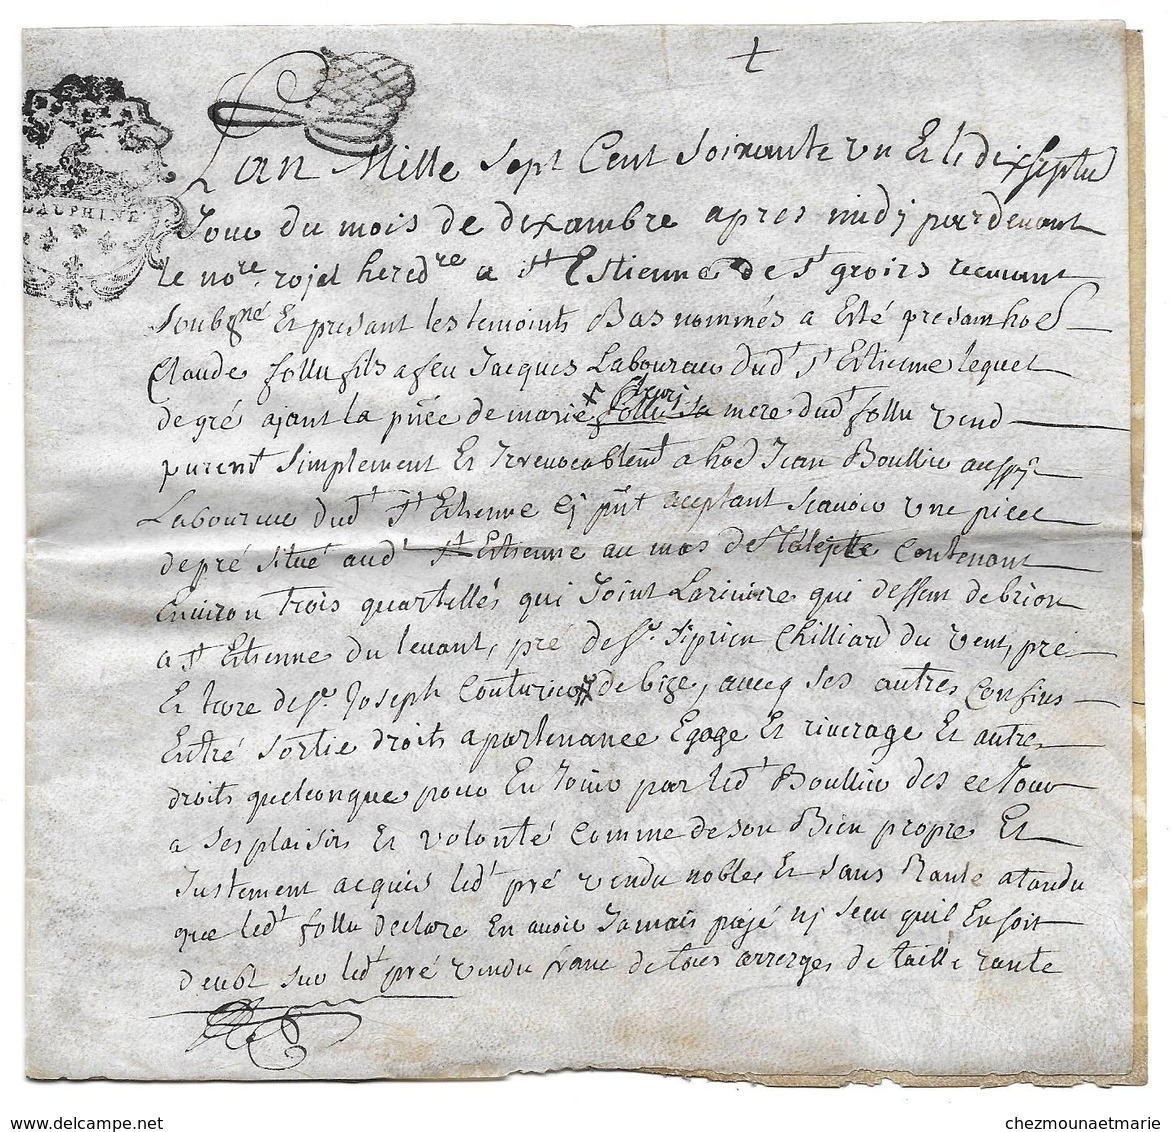 DAUPHINE
Lan Mille Sept Cent Soixante un Et le dixseptie
Jour du mois de dixambre apres midj pardevant
le nore. rojal heredre a St Estienne de St groirs recevant
Soubgné Et presant les temoints Bas nommés a Esté presant hoe
Claude follu fils a feu Jacques Laboureur dudt St Estienne lequel
de gré ajant la pñce de marie follu sa mere dudt follu vend
purent Simplement Et Irrevocablemt a hoe Jean Boullu aussy
Laboureur dudt St Estienne cj pñt aceptant scavoir une piece
de pré situé audt St Estienne au mas de contenant
Environ trois quartellés qui Joint La riviere qui dessent de brion
a St Estienne du levant, pré de Sr. Siprien Chilliard du vent, pré
Et terre de Sr. Joseph Couturier de bize, avecq ses autres Confins
Entré sortie droits apartenance Egage Et riverage Et autres
droits quelconque pour En Joüir par ledt Boullu des ce Jour
a ses plaisirs Et volonté comme de son Bien propre Et
Justement acquis ledt pré vendu noble Et sans Rante atandu
que ledt follu declare En avoir Jamais pajé nj sceu quil En soit
deubt sur ledt pré vendu franc de tous arrerges de taillé rante
www.delcampe.net
chezmounaetmarie